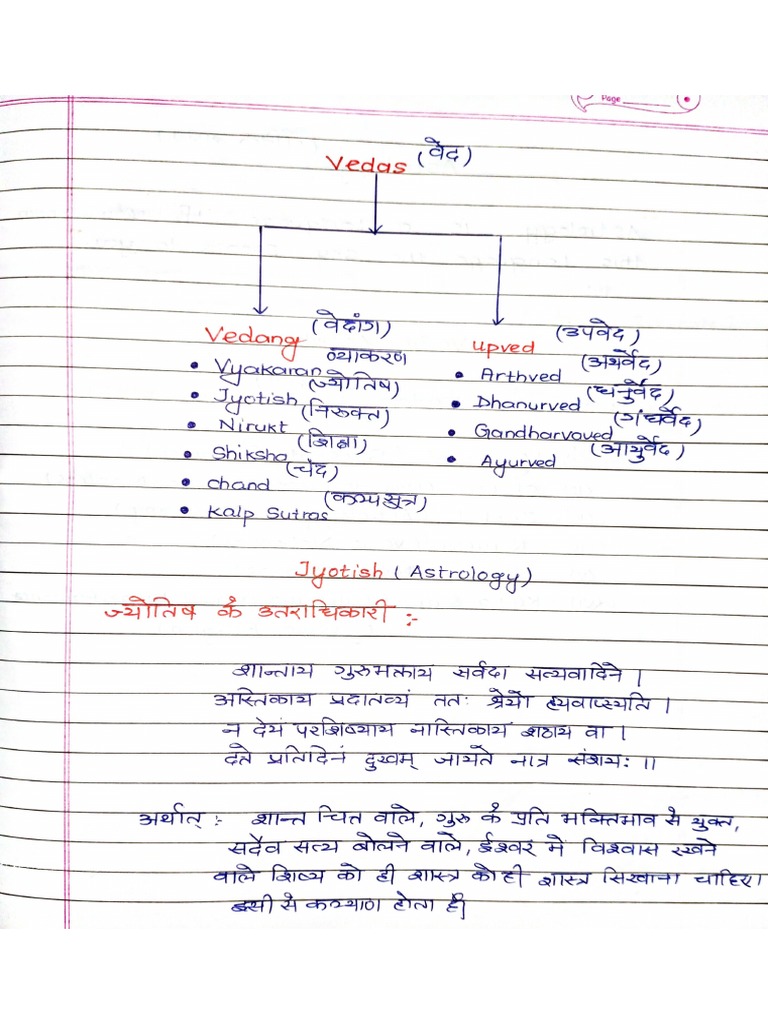 Page
Vedas (वेद)
Vedang (वेदांग)
• Vyakaran व्याकरण
• Jyotish (ज्योतिष)
• Nirukt (निरुक्त)
• Shiksha (शिक्षा)
• chand (चंद)
• Kalp Sutras (कल्पसूत्र)
Upved (उपवेद)
• Arthved (अर्थर्वेद)
• Dhanurved (धनुर्वेद)
• Gandharvaved (गंधर्वेद)
• Ayurved (आयुर्वेद)
Jyotish (Astrology)
ज्योतिष के उतराधिकारी :-
शान्ताय गुरुभक्ताय सर्वदा सत्यवादिने ।
अस्तिकाय प्रदातव्यं ततः श्रेयो ह्यवाप्स्यति ।
न देयं परशिष्याय नास्तिकाय शठाय वा ।
दते प्रतिदिनं दुखम् जायते नात्र संशयः ॥
अर्थात् :- शान्त चित वाले, गुरु के प्रति भक्तिभाव से युक्त,
सदैव सत्य बोलने वाले, ईश्वर में विश्वास रखने
वाले शिष्य को ही शास्त्र को ही शास्त्र सिखाना चाहिए।
इसी से कल्याण होता है।